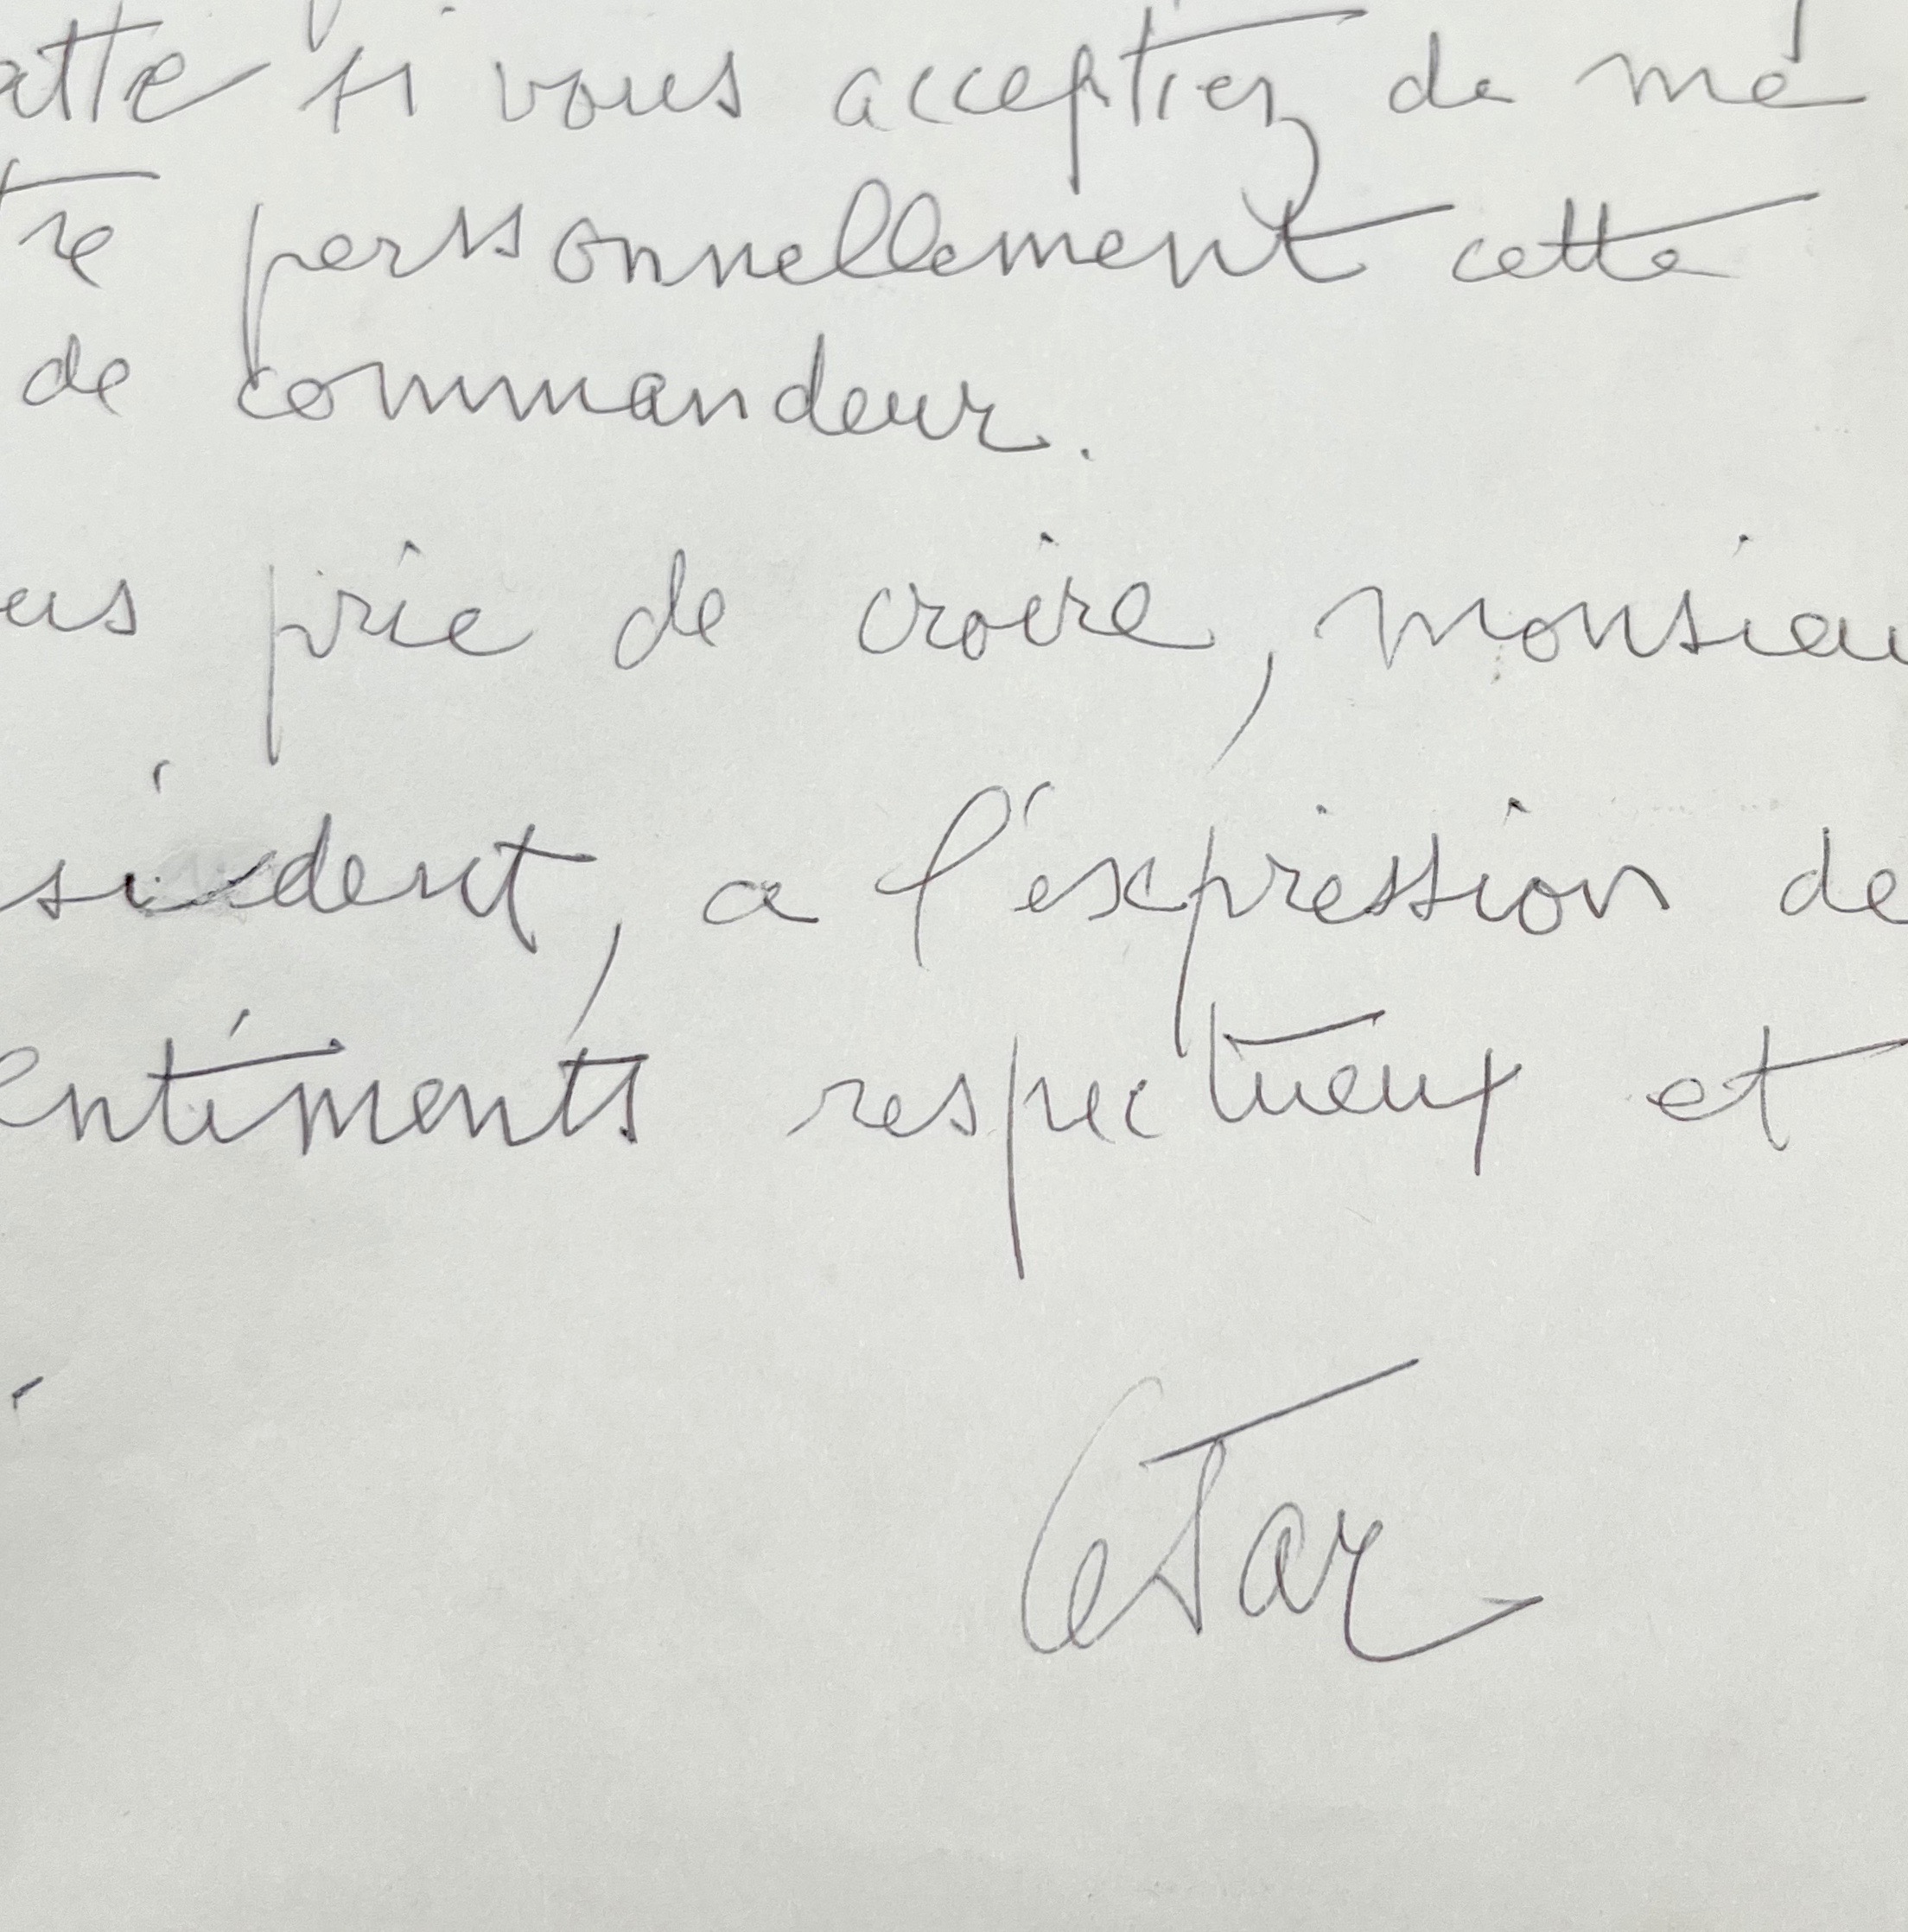 atté si vous acceptiez de me
tre personnellement cette
de commandeur.
us prie de croire, monsieu
sident, a l'éxpression de
entiments respectueux et
César